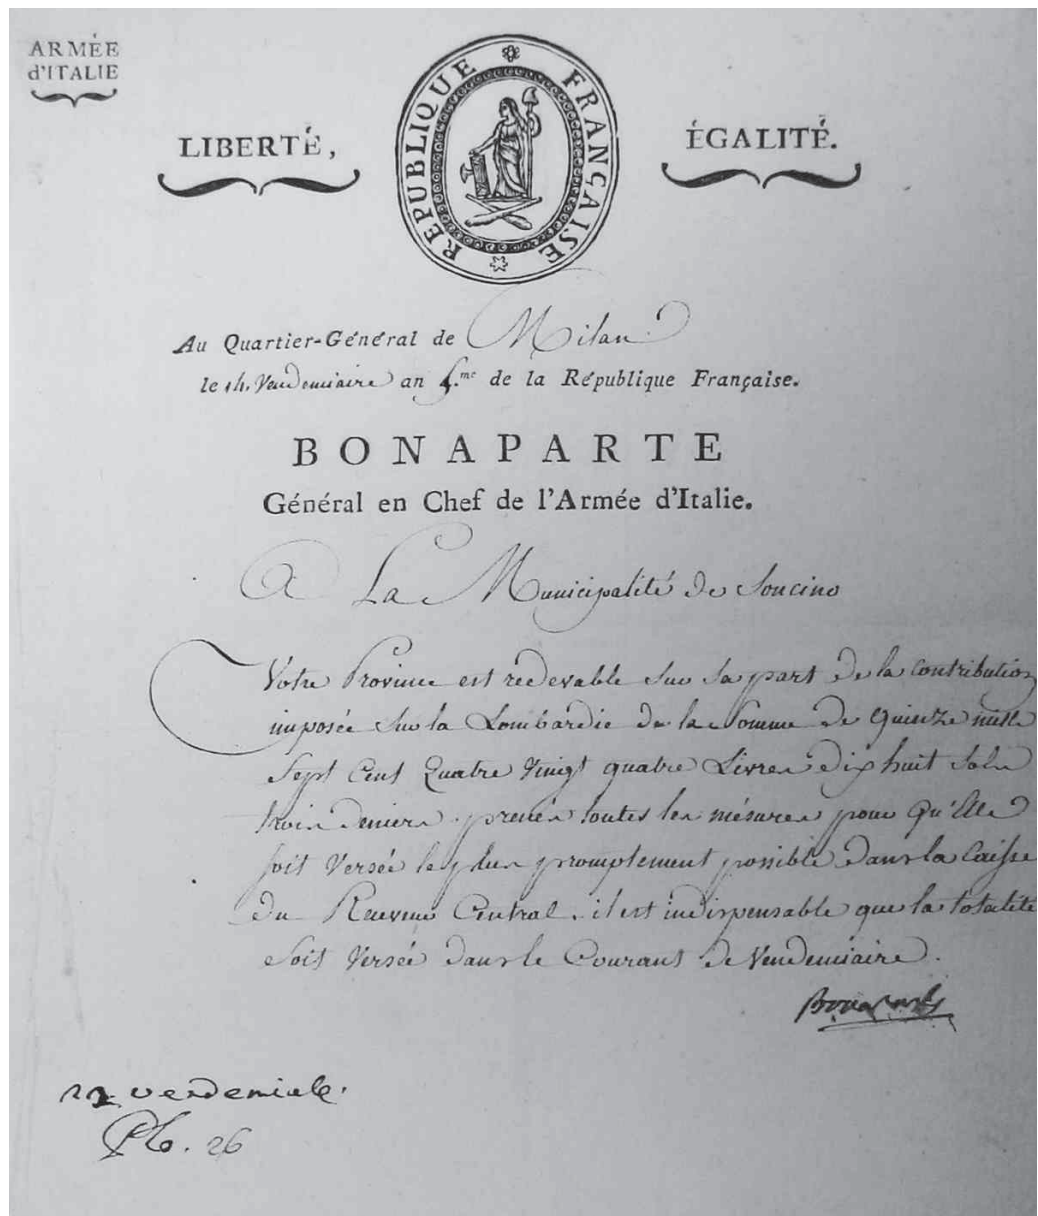 ARMÉE
d'ITALIE
LIBERTÉ,
RÉPUBLIQUE FRANÇAISE
ÉGALITÉ.
Au Quartier-Général de Milan
le 14. Vendemiaire an 5.me de la République Française.
BONAPARTE
Général en Chef de l'Armée d'Italie.
A La Municipalité de Soncino
Votre Province est redevable sur sa part de la contribution
imposée sur la Lombardie de la Somme de Quinze mille
Sept Cent Quatre Vingt quatre Livres dix huit Sols
trois deniers. prenés toutes les mésures pour Qu'Elle
soit Versée le plus promptement possible dans la Caisse
du Receveur Central. il est indispensable que la totalité
Soit Versée dans le Courant de Vendemiaire.
Bonaparte
22 vendemiale.
26